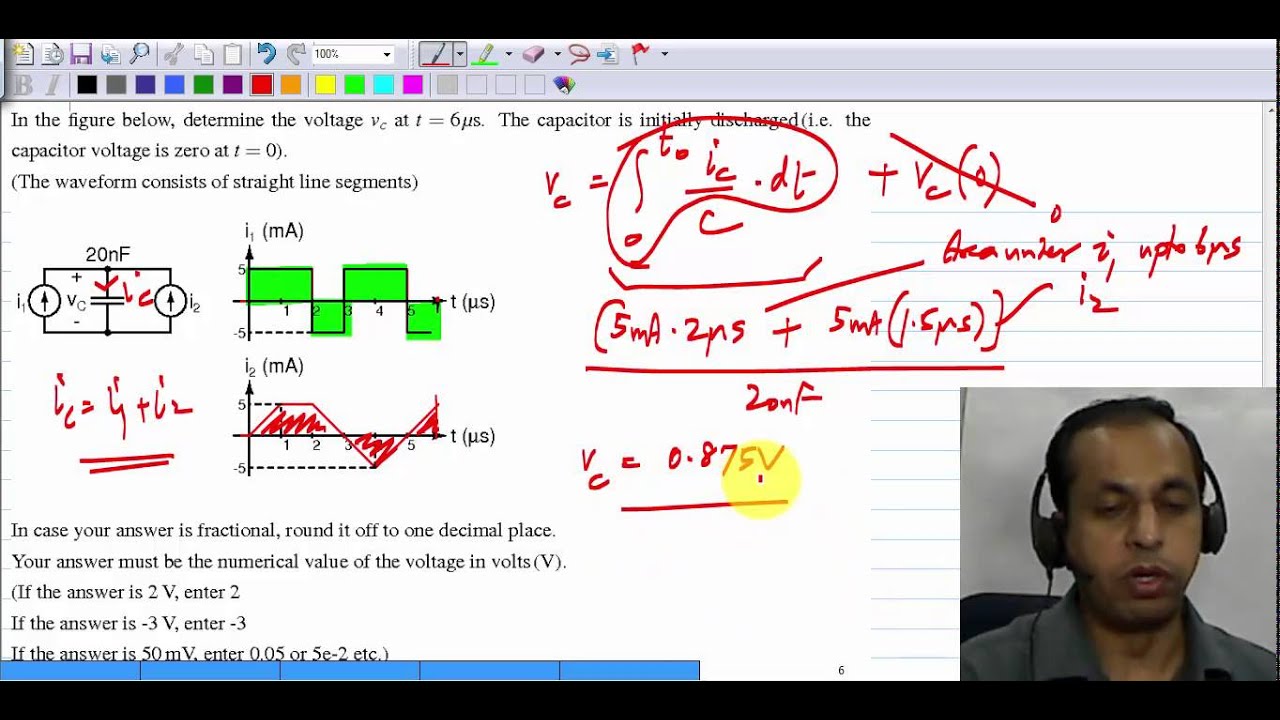 100%
B I
In the figure below, determine the voltage vc at t = 6μs. The capacitor is initially discharged (i.e. the
capacitor voltage is zero at t = 0).
(The waveform consists of straight line segments)
vc = ∫ 0 to ic/C · dt + vc(0) 0
Area under i1 upto 6μs
i2
i1 (mA)
5
-5
1 2 3 4 5
t (μs)
20nF
i1
+
vC
-
ic
i2
(5mA · 2μs + 5mA (1.5μs))
20nF
i2 (mA)
5
-5
1 2 3 4 5
t (μs)
ic = i1 + i2
vc = 0.875V
In case your answer is fractional, round it off to one decimal place.
Your answer must be the numerical value of the voltage in volts (V).
(If the answer is 2 V, enter 2
If the answer is -3 V, enter -3
If the answer is 50 mV, enter 0.05 or 5e-2 etc.)
6